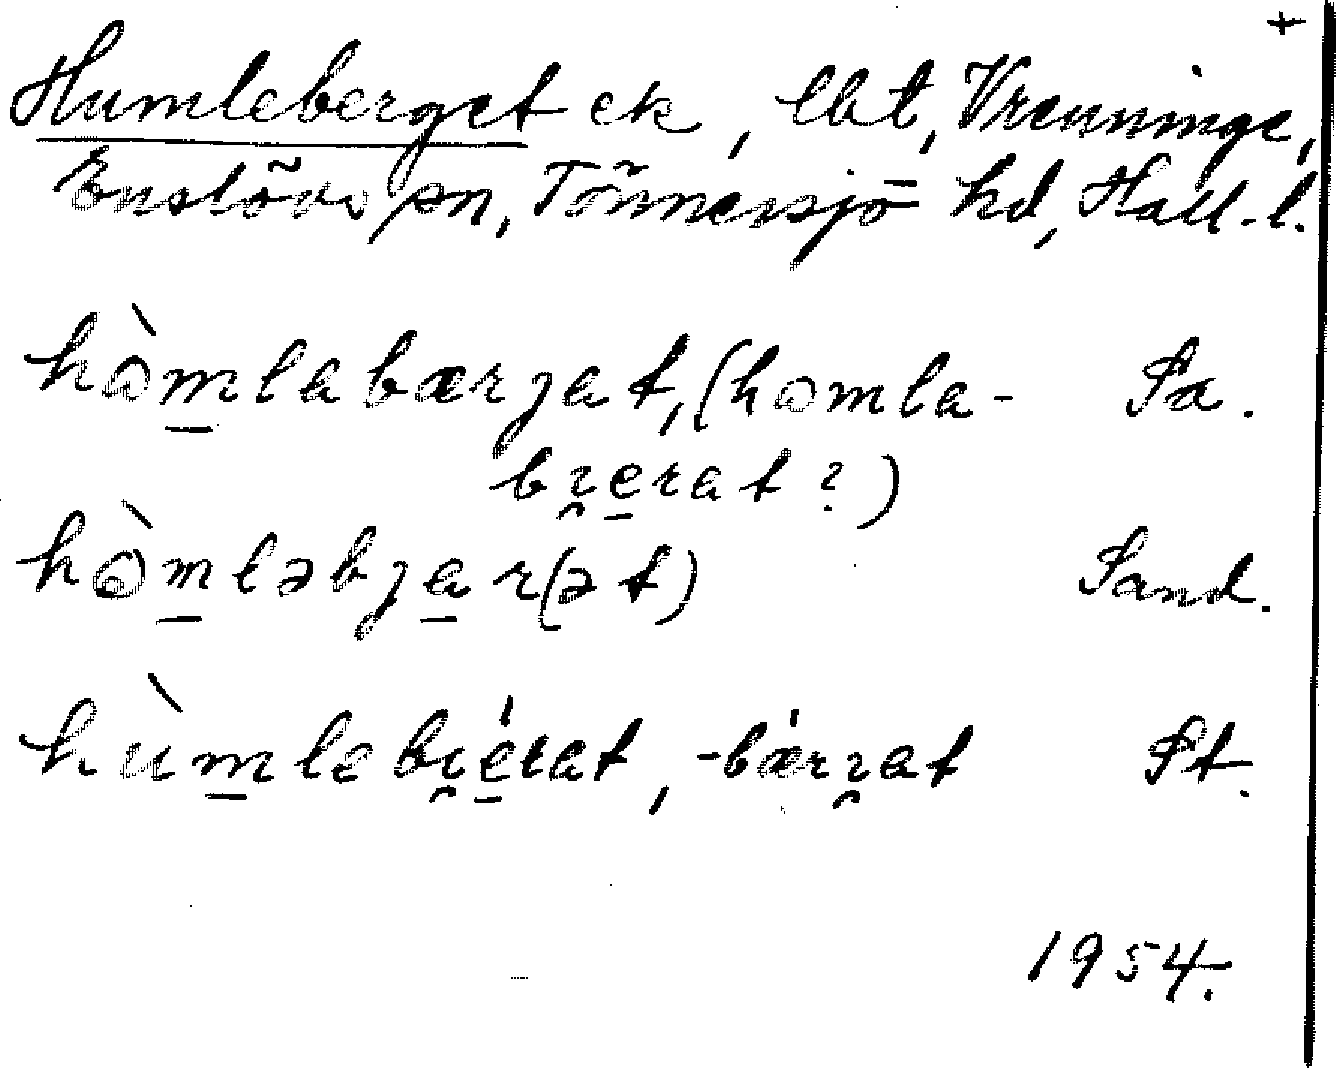 +
Humleberget ek, lht, Vrenninge,
Enslövs sn, Tönnersjö hd, Hall. l.
hòmlabærjat, (homla- Sa.
bi̯erat?)
hòmləbjar(ət) Sand.
hùmlebi̯érat, -bǽri̯at St.
1954.